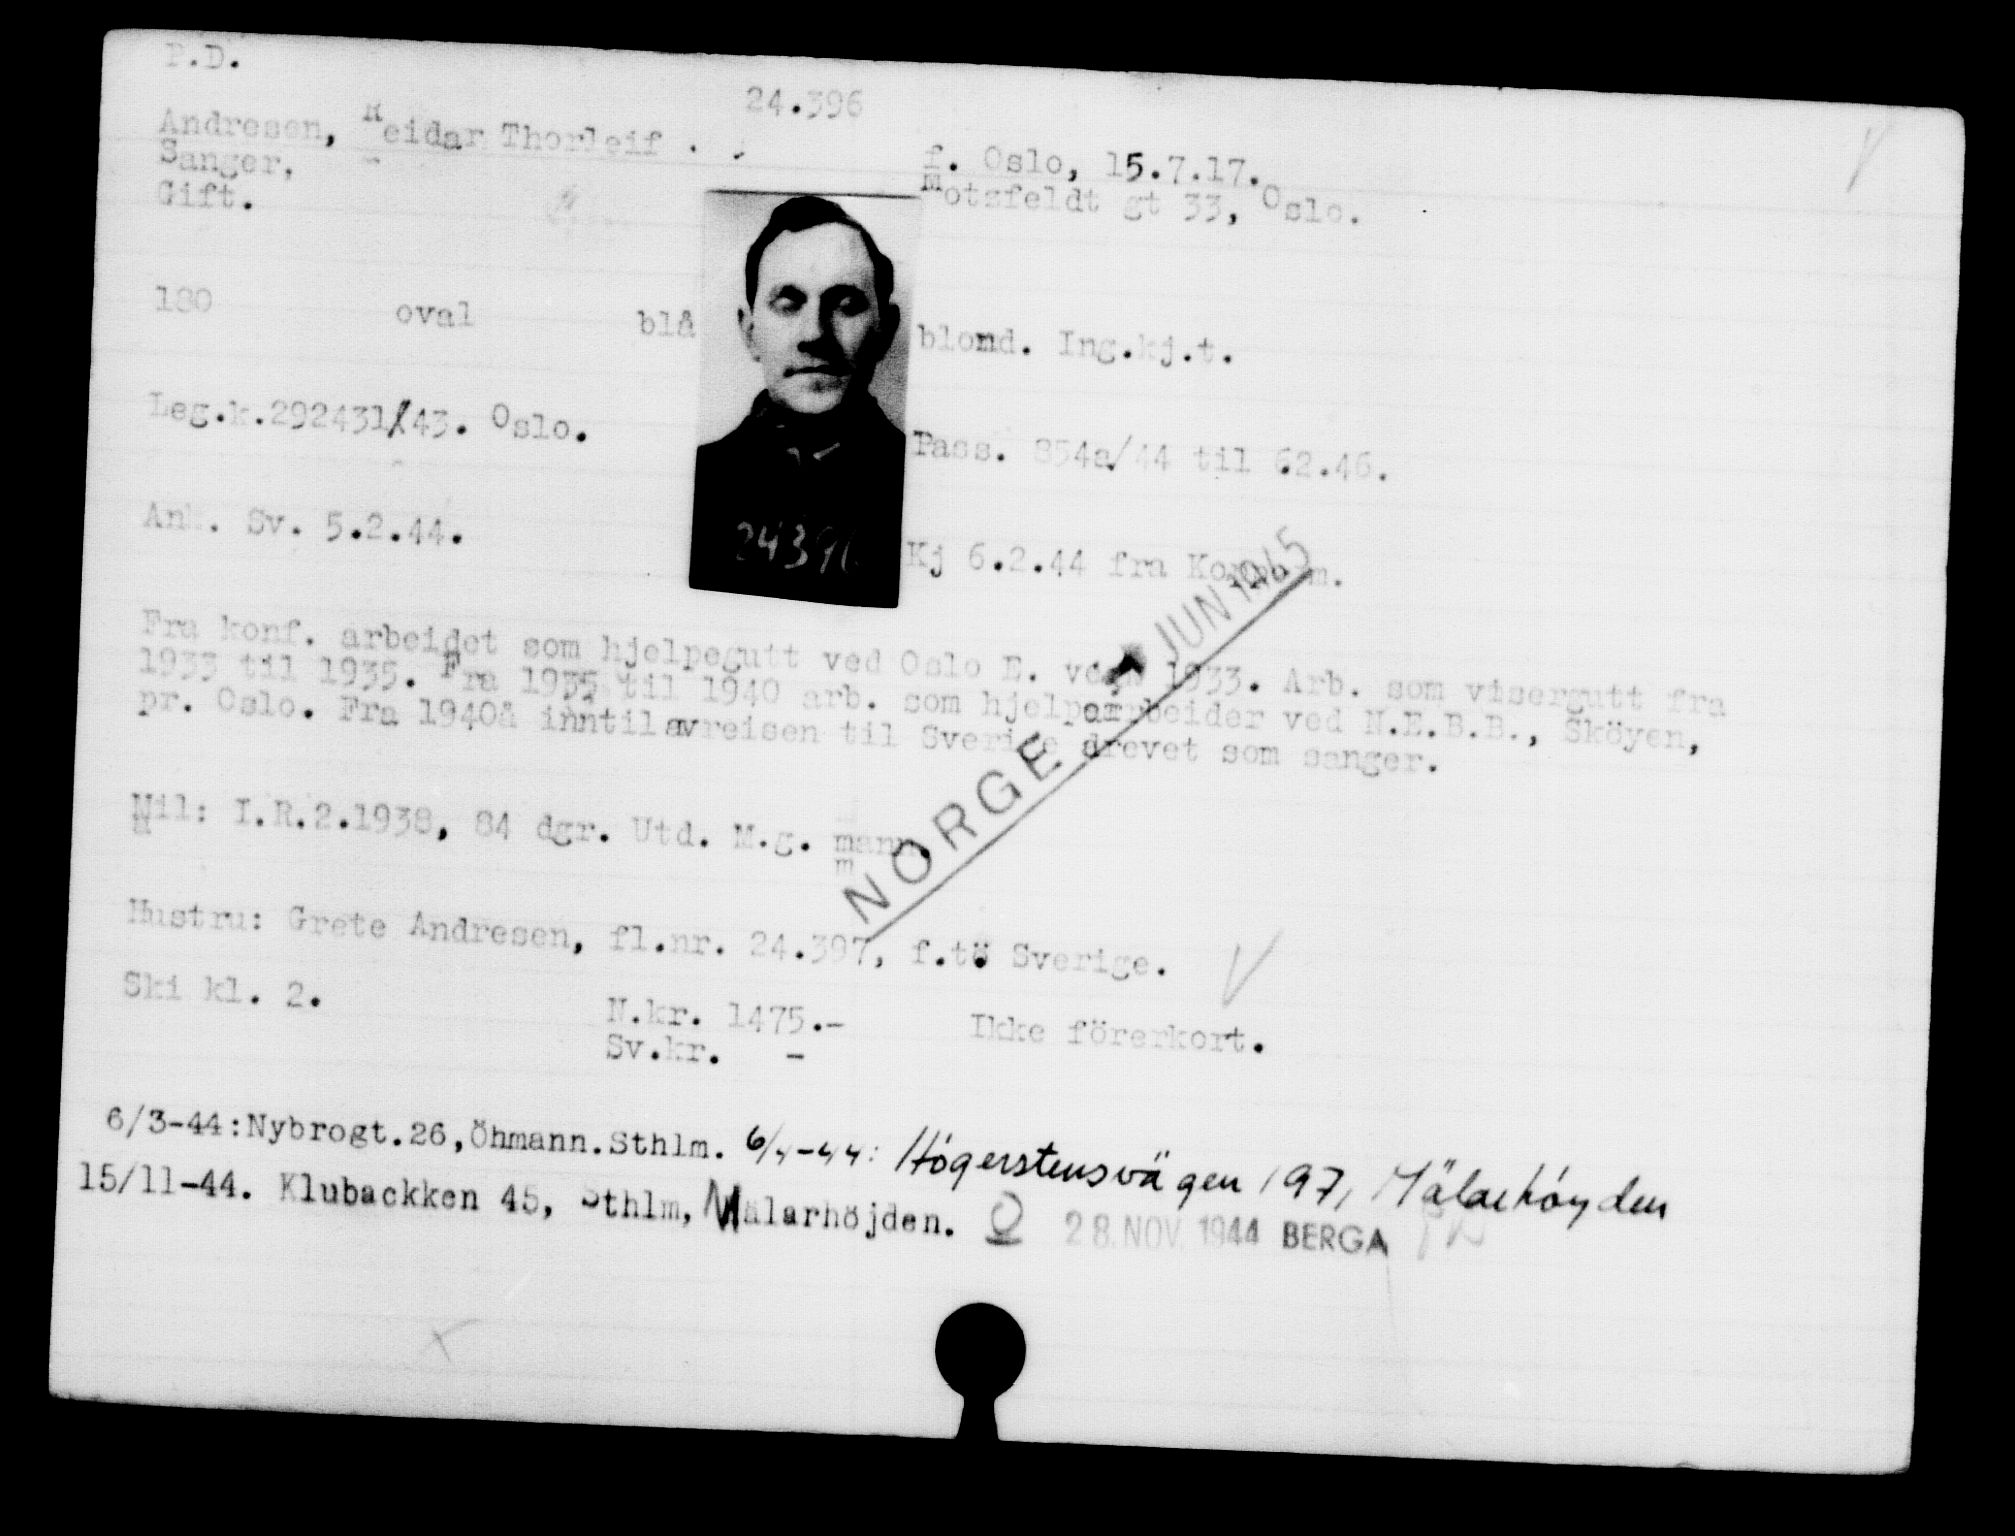 P.D.
24.396
Andresen, Reidar Thorleif .
f. Oslo, 15.7.17.
Sanger,
Motzfeldt gt 33, Oslo.
Gift.
180 oval blå blond. Ing.kj.t.
Leg.k.292431/43. Oslo.
Pass. 854a/44 til 6.2.46.
24396
Ank. Sv. 5.2.44.
Kj 6.2.44 fra Kornsjö.
Fra konf. arbeidet som hjelpegutt ved Oslo E. verk 1933. Arb. som visergutt fra
1933 til 1935. Fra 1935 til 1940 arb. som hjelpearbeider ved N.E.B.B., Sköyen,
pr. Oslo. Fra 1940å inntil avreisen til Sverige drevet som sanger.
NORGE JUN 1945
Mil: I.R.2.1938, 84 dgr. Utd. M.g. mann.
Hustru: Grete Andresen, fl.nr. 24.397, f.t. Sverige.
Ski kl. 2.
N.kr. 1475.-
Ikke förerkort.
Sv.kr. -
6/3-44:Nybrogt.26,Öhmann.Sthlm. 6/4-44: Högerstensvägen 197, Mälarhöyden
15/11-44. Klubackken 45, Sthlm, Mälarhöjden. 28. NOV. 1944 BERGA